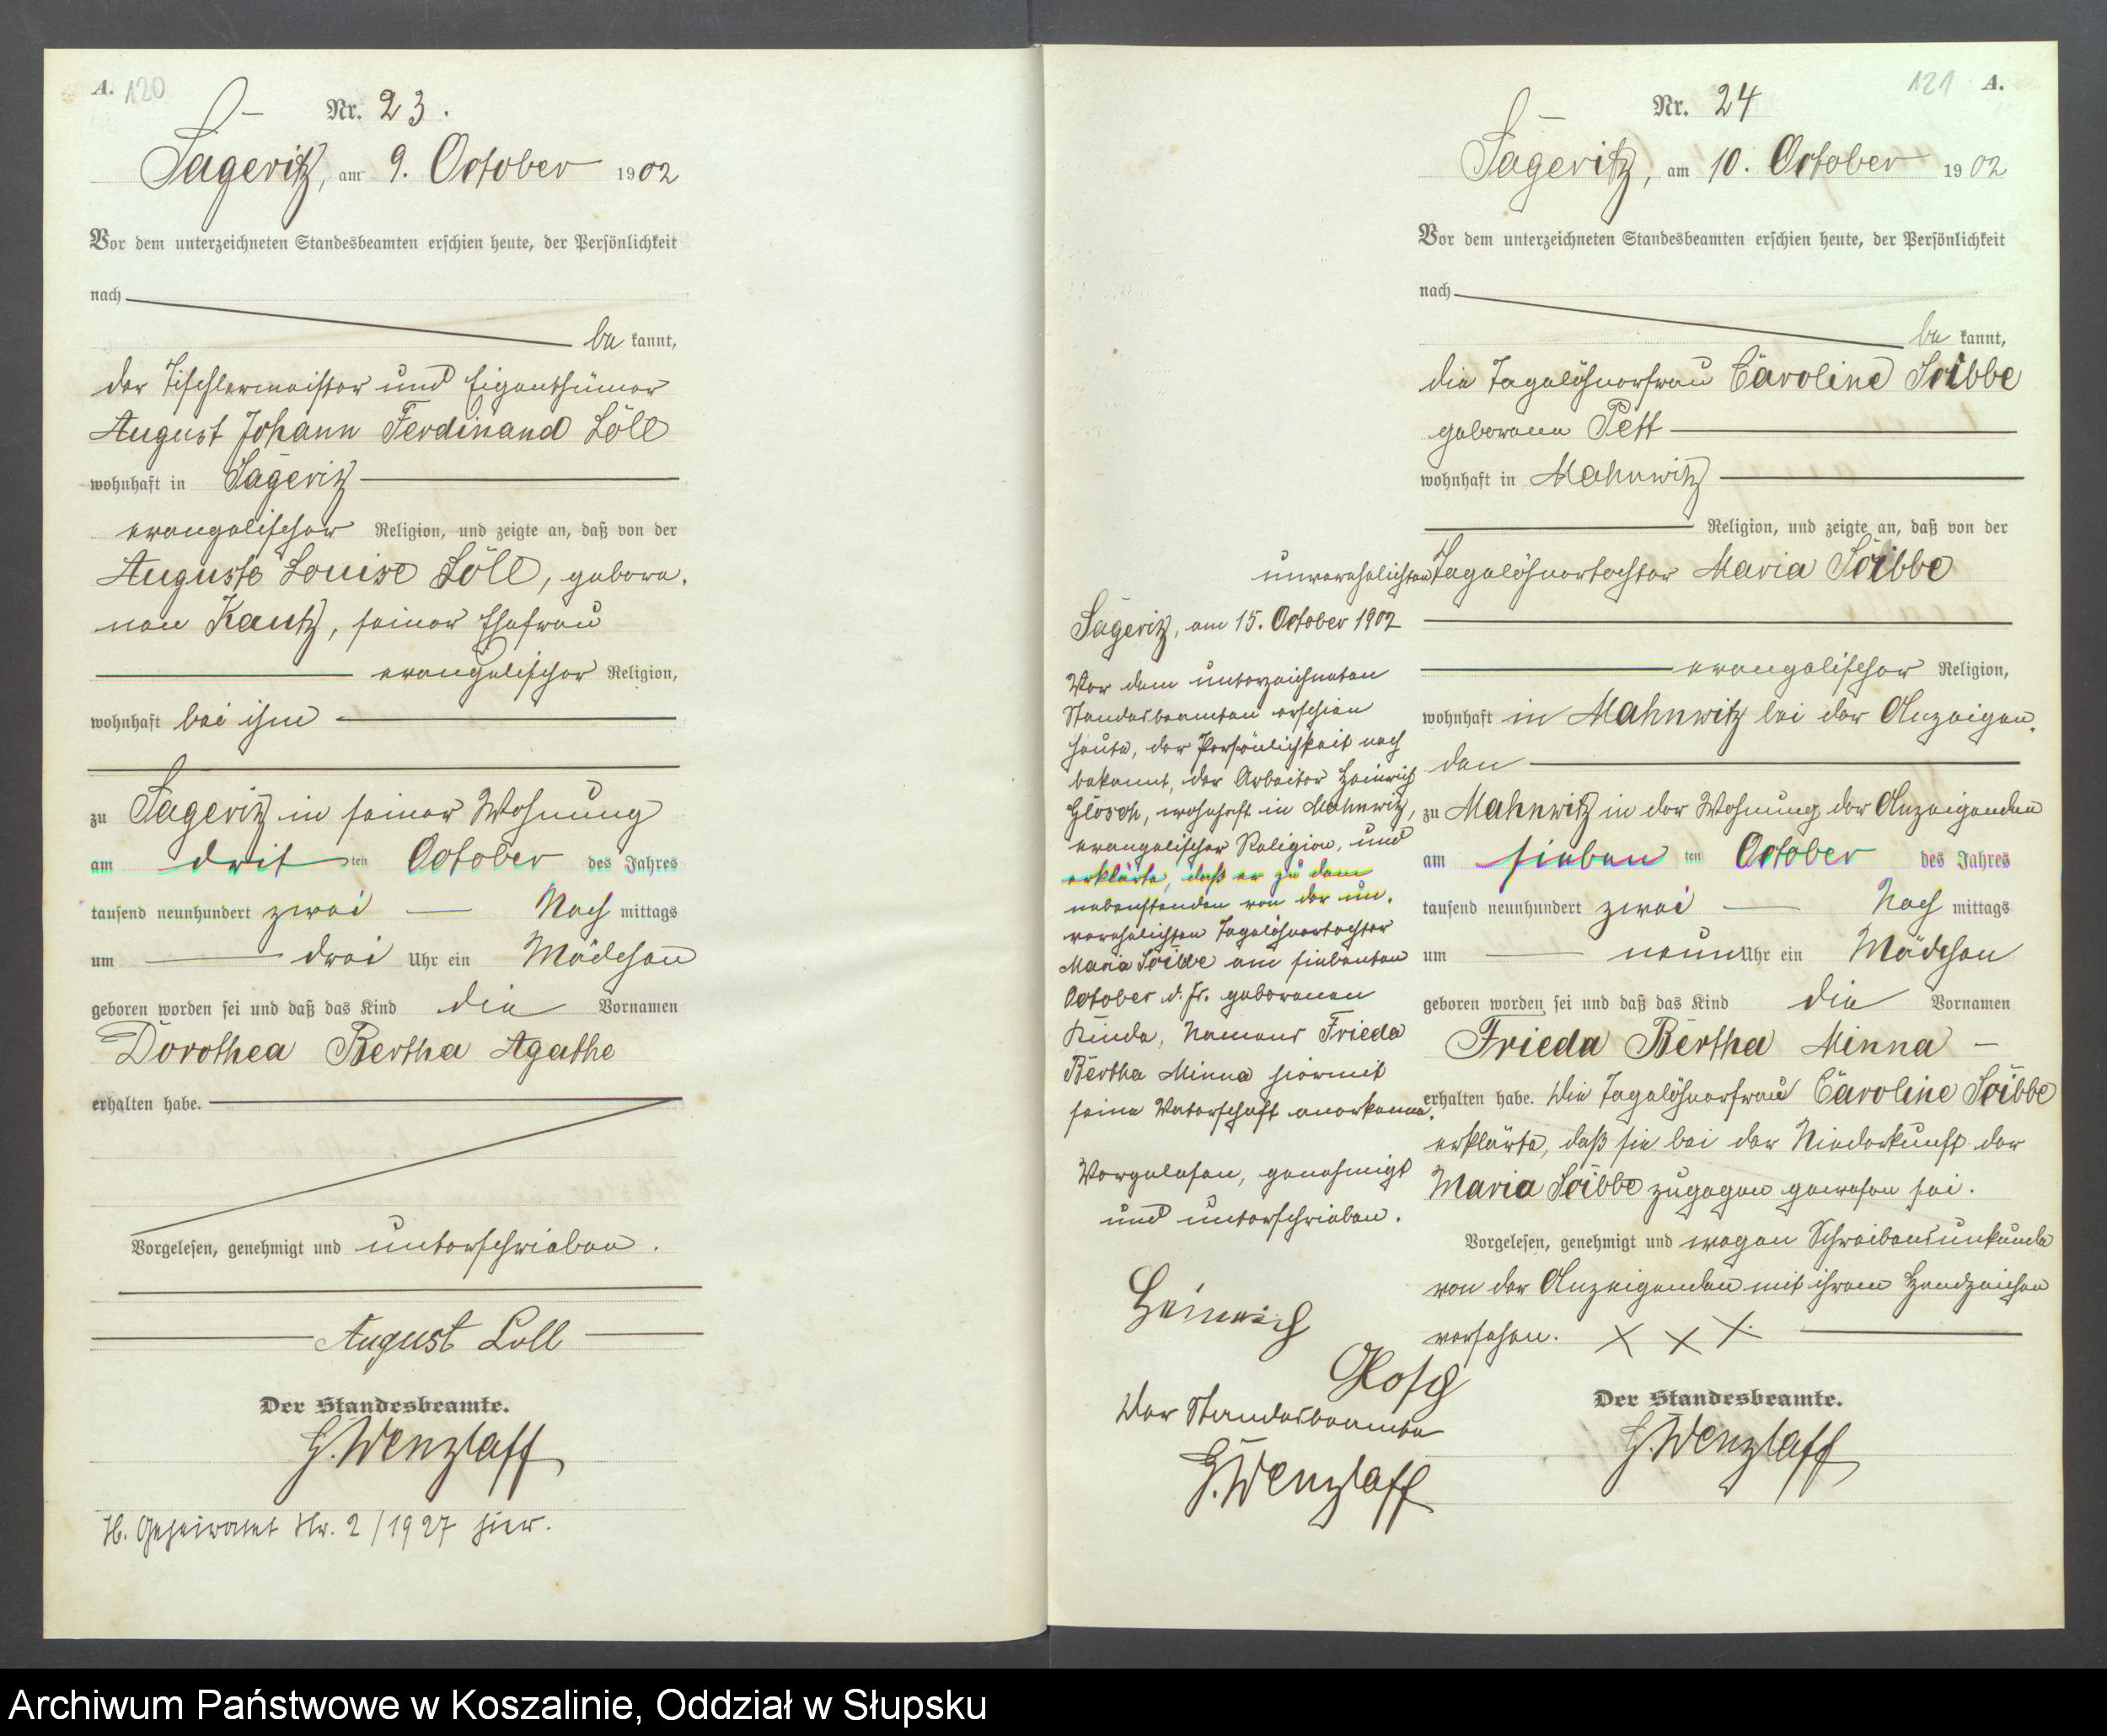 A. 120
Nr. 23.
Sageritz, am 9. October 1902
Vor dem unterzeichneten Standesbeamten erschien heute, der Persönlichkeit
nach
be kannt,
der Tischlermeister und Eigenthümer
August Johann Ferdinand Löll
wohnhaft in Sageritz
evangelischer Religion, und zeigte an, daß von der
Auguste Louise Löll, gebore-
nen Kautz, seiner Ehefrau
evangelischer Religion,
wohnhaft bei ihm
zu Sageritz in seiner Wohnung
am dritten October des Jahres
tausend neunhundert zwei Nach mittags
um drei Uhr ein Mädchen
geboren worden sei und daß das Kind die Vornamen
Dorothea Bertha Agathe
erhalten habe.
Vorgelesen, genehmigt und unterschrieben.
August Löll
Der Standesbeamte.
G. Wenzlaff
H. Geheiratet Nr. 2/1927 hier.
121 A.
Nr. 24
Sageritz, am 10. October 1902
Vor dem unterzeichneten Standesbeamten erschien heute, der Persönlichkeit
nach
be kannt,
die Tagelöhnerfrau Caroline
geborene Pett
wohnhaft in Mahnwitz
Religion, und zeigte an, daß von der
unverehelichten Tagelöhnertochter Maria
evangelischer Religion,
wohnhaft in Mahnwitz bei der Anzeigen-
den
zu Mahnwitz in der Wohnung der Anzeigenden
am siebenten October des Jahres
tausend neunhundert zwei Nach mittags
um neun Uhr ein Mädchen
geboren worden sei und daß das Kind die Vornamen
Frieda Bertha Minna
erhalten habe. Die Tagelöhnerfrau Caroline
erklärte, daß sie bei der Niederkunft der
Maria zugegen gewesen sei.
Vorgelesen, genehmigt und wegen Schreibensunkunde
von der Anzeigenden mit ihrem Handzeichen
versehen. X X X.
Der Standesbeamte.
G. Wenzlaff
Sageritz, am 15. October 1902
Vor dem unterzeichneten
Standesbeamten erschien
heute, der Persönlichkeit nach
bekannt, der Arbeiter Heinrich
Glosch, wohnhaft in Mahnwitz,
evangelischer Religion, und
erklärte, daß er zu dem
nebenstehenden von der un-
verehelichten Tagelöhnertochter
Maria am siebenten
October d. Js. geborenen
Kinde, Namens Frieda
Bertha Minna hiermit
seine Vaterschaft anerkenne.
Vorgelesen, genehmigt
und unterschrieben.
Heinrich
Glosch
Der Standesbeamte
G. Wenzlaff
Archiwum Państwowe w Koszalinie, Oddział w Słupsku